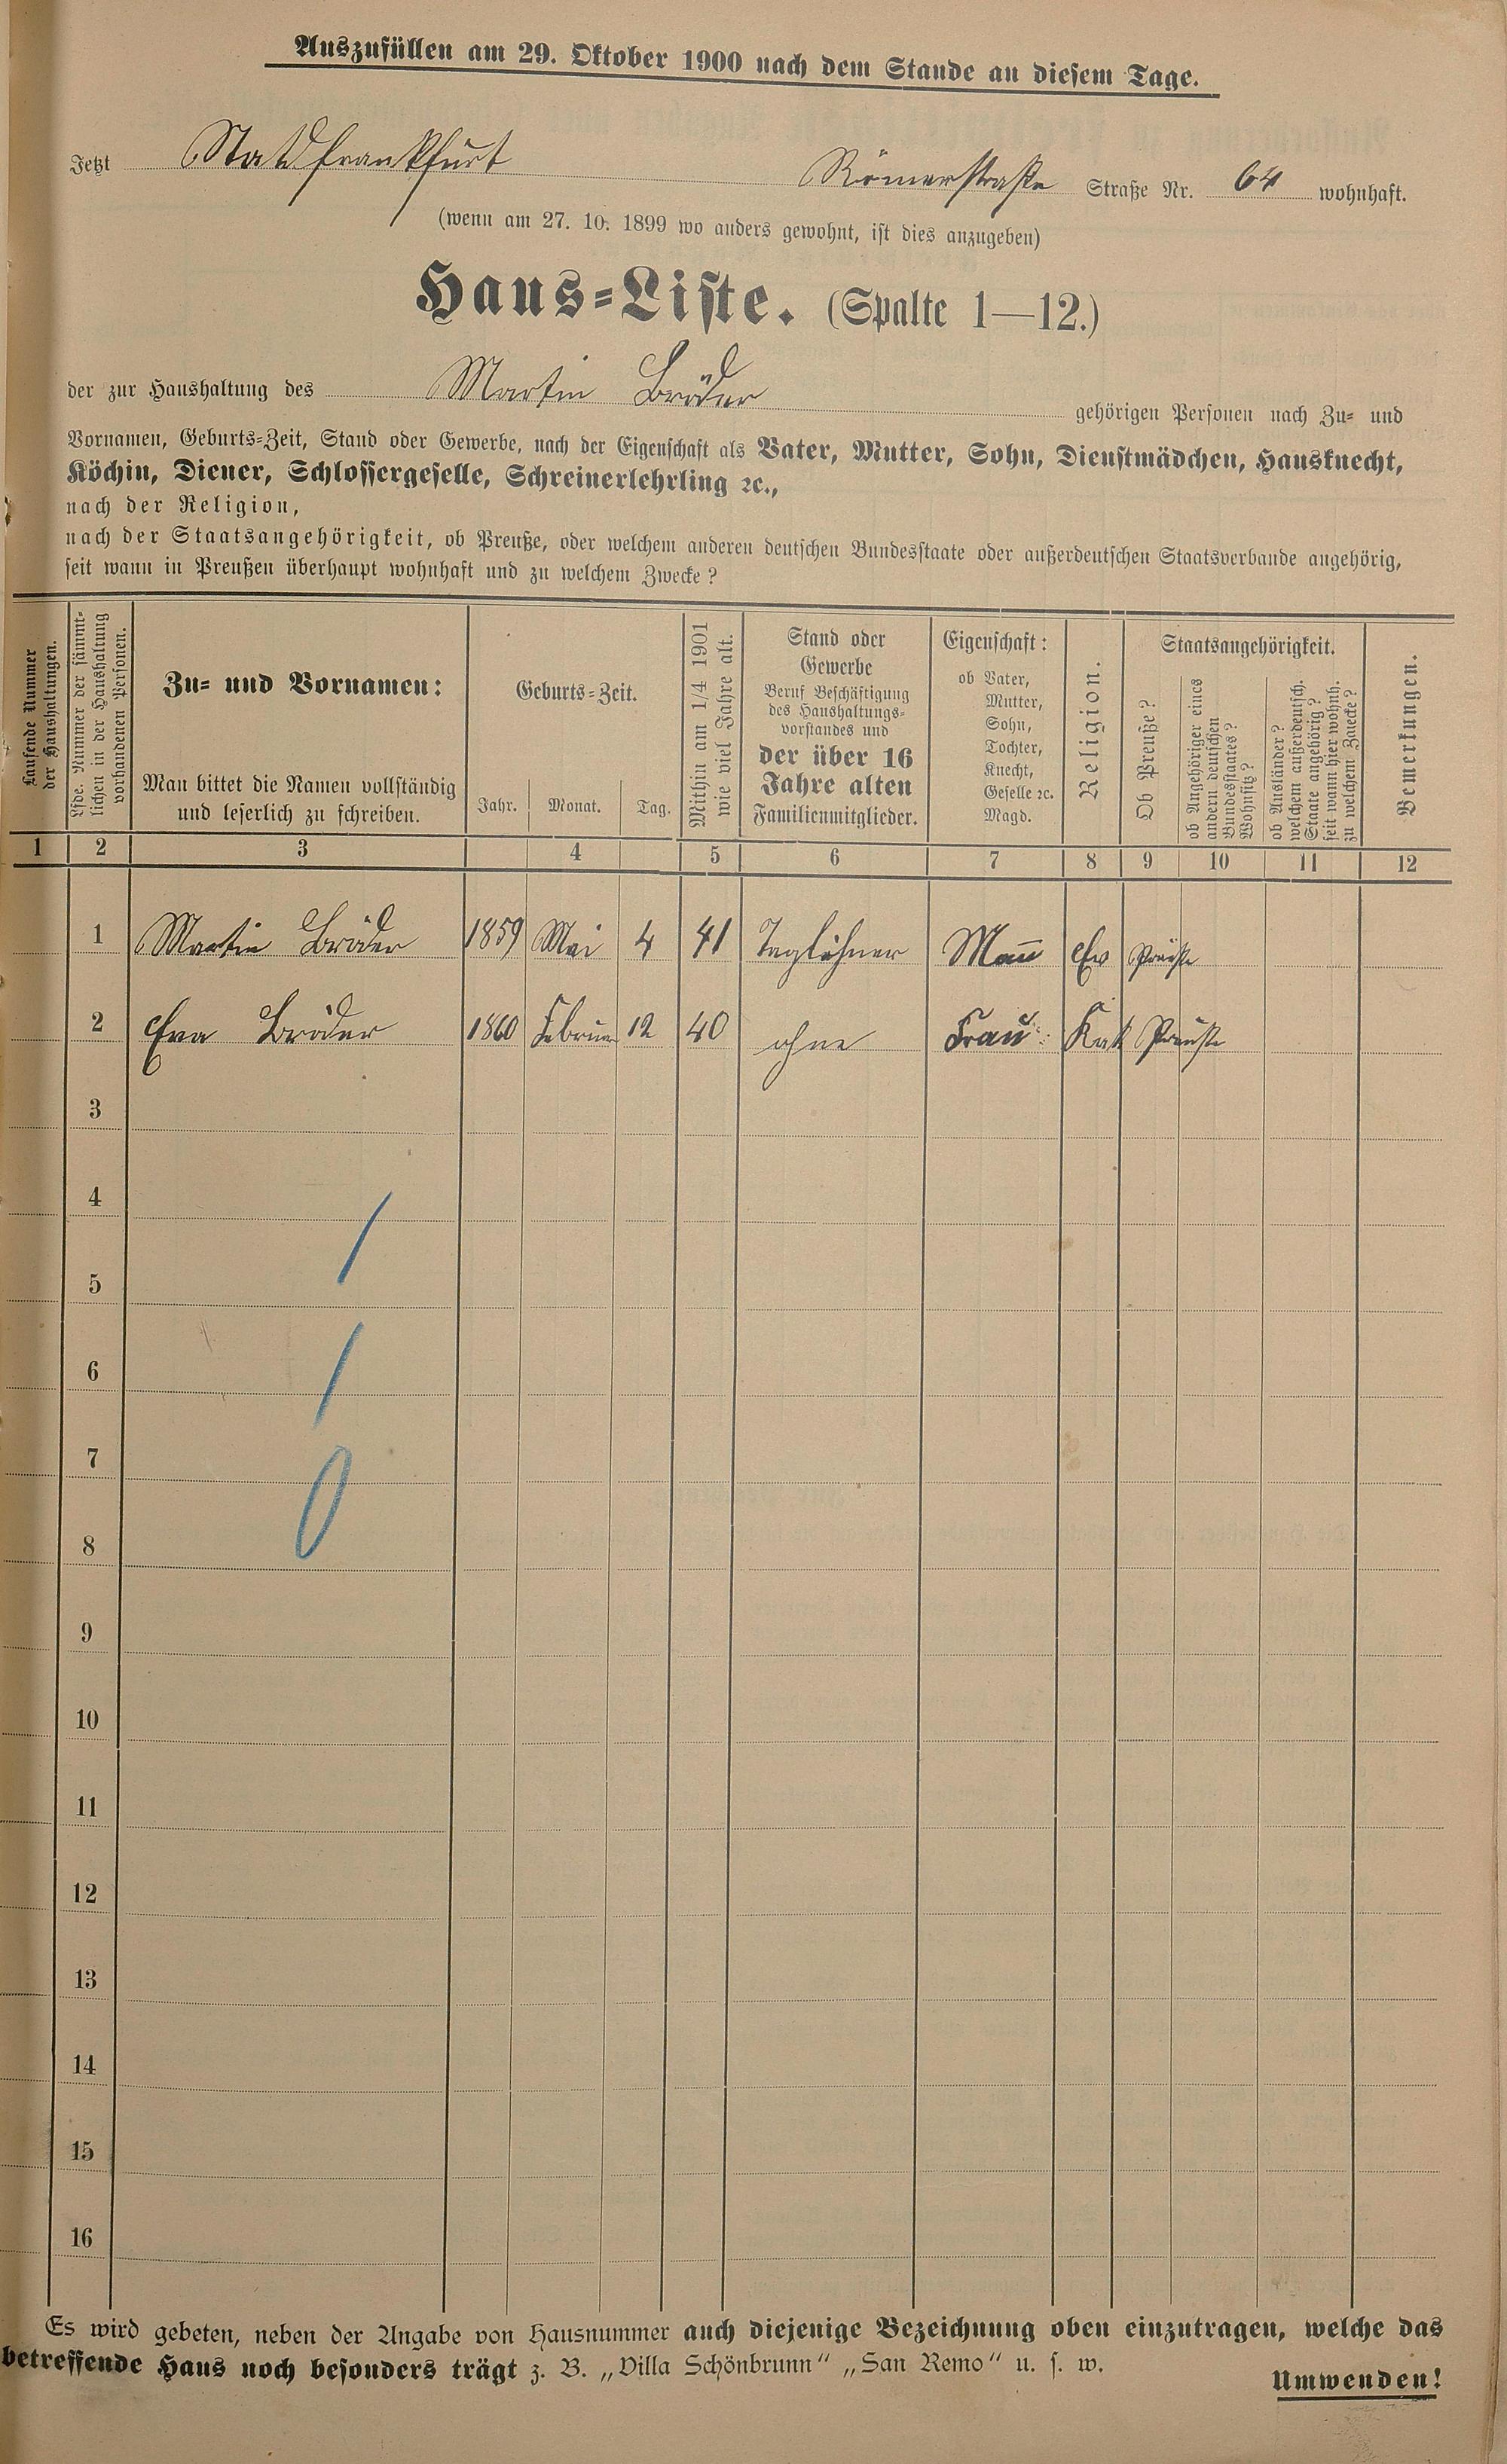 Auszufüllen am 29. Oktober 1900 nach dem Stande an diesem Tage.
Jetzt Statdfrankfurt Römerstraße Straße Nr. 64 wohnhaft.
(wenn am 27. 10. 1899 wo anders gewohnt, ist dies anzugeben)
Haus-Liste. (Spalte 1—12.)
der zur Haushaltung des Martin Bröder gehörigen Personen nach Zu- und
Vornamen, Geburts-Zeit, Stand oder Gewerbe, nach der Eigenschaft als Vater, Mutter, Sohn, Dienstmädchen, Hausknecht,
Köchin, Diener, Schlossergeselle, Schreinerlehrling ꝛc.,
nach der Religion,
nach der Staatsangehörigkeit, ob Preuße, oder welchem anderen deutschen Bundesstaate oder außerdeutschen Staatsverbande angehörig,
seit wann in Preußen überhaupt wohnhaft und zu welchem Zwecke?
Laufende Nummer
der Haushaltungen.
Lfde. Nummer der sämmt-
lichen in der Haushaltung
vorhandenen Personen.
Zu- und Vornamen:
Man bittet die Namen vollständig
und leserlich zu schreiben.
Geburts-Zeit.
Jahr. Monat. Tag.
Mithin am 1/4 1901
wie viel Jahre alt.
Stand oder
Gewerbe
Beruf Beschäftigung
des Haushaltungs-
vorstandes und
der über 16
Jahre alten
Familienmitglieder.
Eigenschaft:
ob Vater,
Mutter,
Sohn,
Tochter,
Knecht,
Geselle ꝛc.
Magd.
Religion.
Staatsangehörigkeit.
Ob Preuße?
ob Angehöriger eines
andern deutschen
Bundesstaates?
Wohnsitz?
ob Ausländer?
welchem außerdeutsch.
Staate angehörig?
seit wann hier wohnh.
zu welchem Zwecke?
Bemerkungen.
1 2 3 4 5 6 7 8 9 10 11 12
1 Martin Bröder 1859 Mai 4 41 Taglöhner Mann Ev Präuße
2 Eva Bröder 1860 Februar 12 40 ohne Frau Kat Präuße
3
4
5
6
7
8
9
10
11
12
13
14
15
16
Es wird gebeten, neben der Angabe von Hausnummer auch diejenige Bezeichnung oben einzutragen, welche das
betreffende Haus noch besonders trägt z. B. „Villa Schönbrunn“ „San Remo“ u. s. w.
Umwenden!